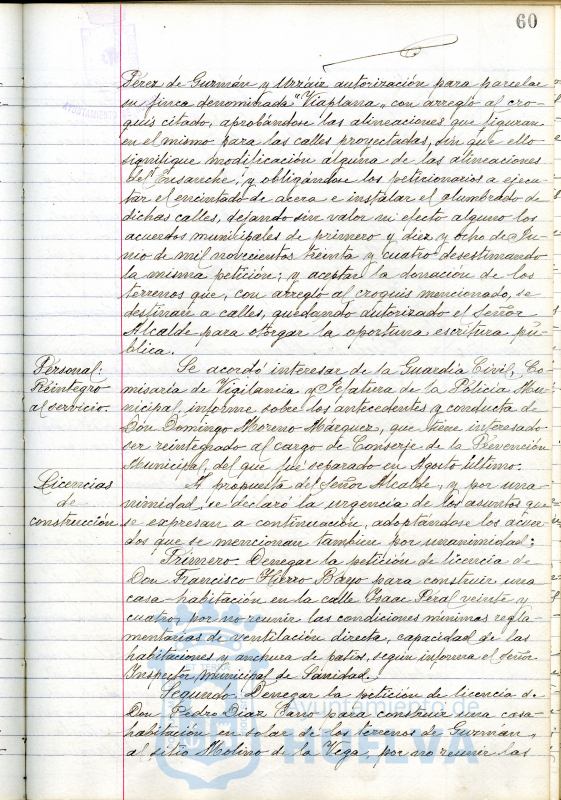 60
Pérez de Guzmán y Urzáiz autorización para parcelar
su finca denominada "Viaplana" con arreglo al cro-
quis citado, aprobándose las alineaciones que figuran
en el mismo para las calles proyectadas, sin que ello
signifique modificación alguna de las alineaciones
del Ensanche; y obligándose los peticionarios a ejecu-
tar el encintado de acera e instalar el alumbrado de
dichas calles, dejando sin valor ni efecto alguno los
acuerdos municipales de primero y diez y ocho de Ju-
nio de mil novecientos treinta y cuatro desestimando
la misma petición; y aceptar la donación de los
terrenos que, con arreglo al croquis mencionado, se
destinan a calles, quedando autorizado el Señor
Alcalde para otorgar la oportuna escritura pú-
blica.
Personal:
Reintegro
al servicio.
Se acordó interesar de la Guardia Civil, Co-
misaría de Vigilancia y Jefatura de la Policía Mu-
nicipal, informe sobre los antecedentes y conducta de
Don Domingo Moreno Márquez, que tiene interesado
ser reintegrado al cargo de Conserje de la Prevención
Municipal, del que fué separado en Agosto último.
Licencias
de
construcción
A propuesta del Señor Alcalde, y por una-
nimidad, se declaró la urgencia de los asuntos que
se expresan a continuación, adoptándose los acuer-
dos que se mencionan tambien por unanimidad:
Primero. Denegar la petición de licencia de
Don Francisco Fierro Bayo para construir una
casa-habitación en la calle Isaac Peral veinte y
cuatro, por no reunir las condiciones mínimas regla-
mentarias de ventilación directa, capacidad de las
habitaciones y anchura de patios, según informa el señor
Inspector Municipal de Sanidad.
Segundo. Denegar la petición de licencia de
Don Pedro Díaz para construir una casa-
habitación en solar de los terrenos de Guzmán,
al sitio Molino de la Vega, por no reunir las
Ayuntamiento de
HUELVA